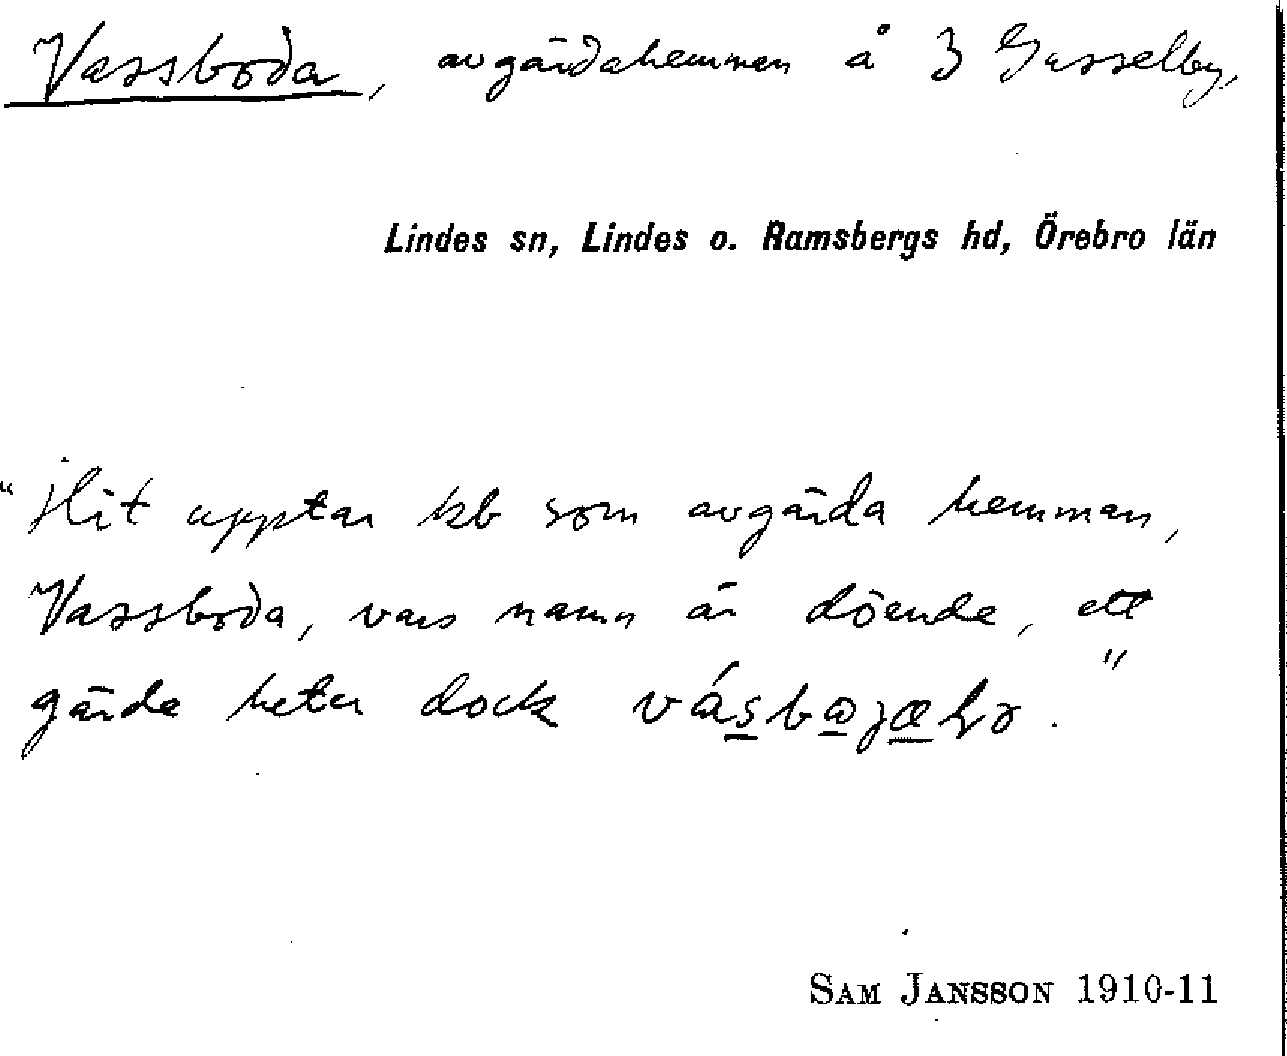 Vassboda, avgärdahemman å 3 Gusselby,
Lindes sn, Lindes o. Ramsbergs hd, Örebro län
"Hit upptar kb som avgärda hemman,
Vassboda, vars namn är döende, ett
gärde heter dock
SAM JANSSON 1910-11